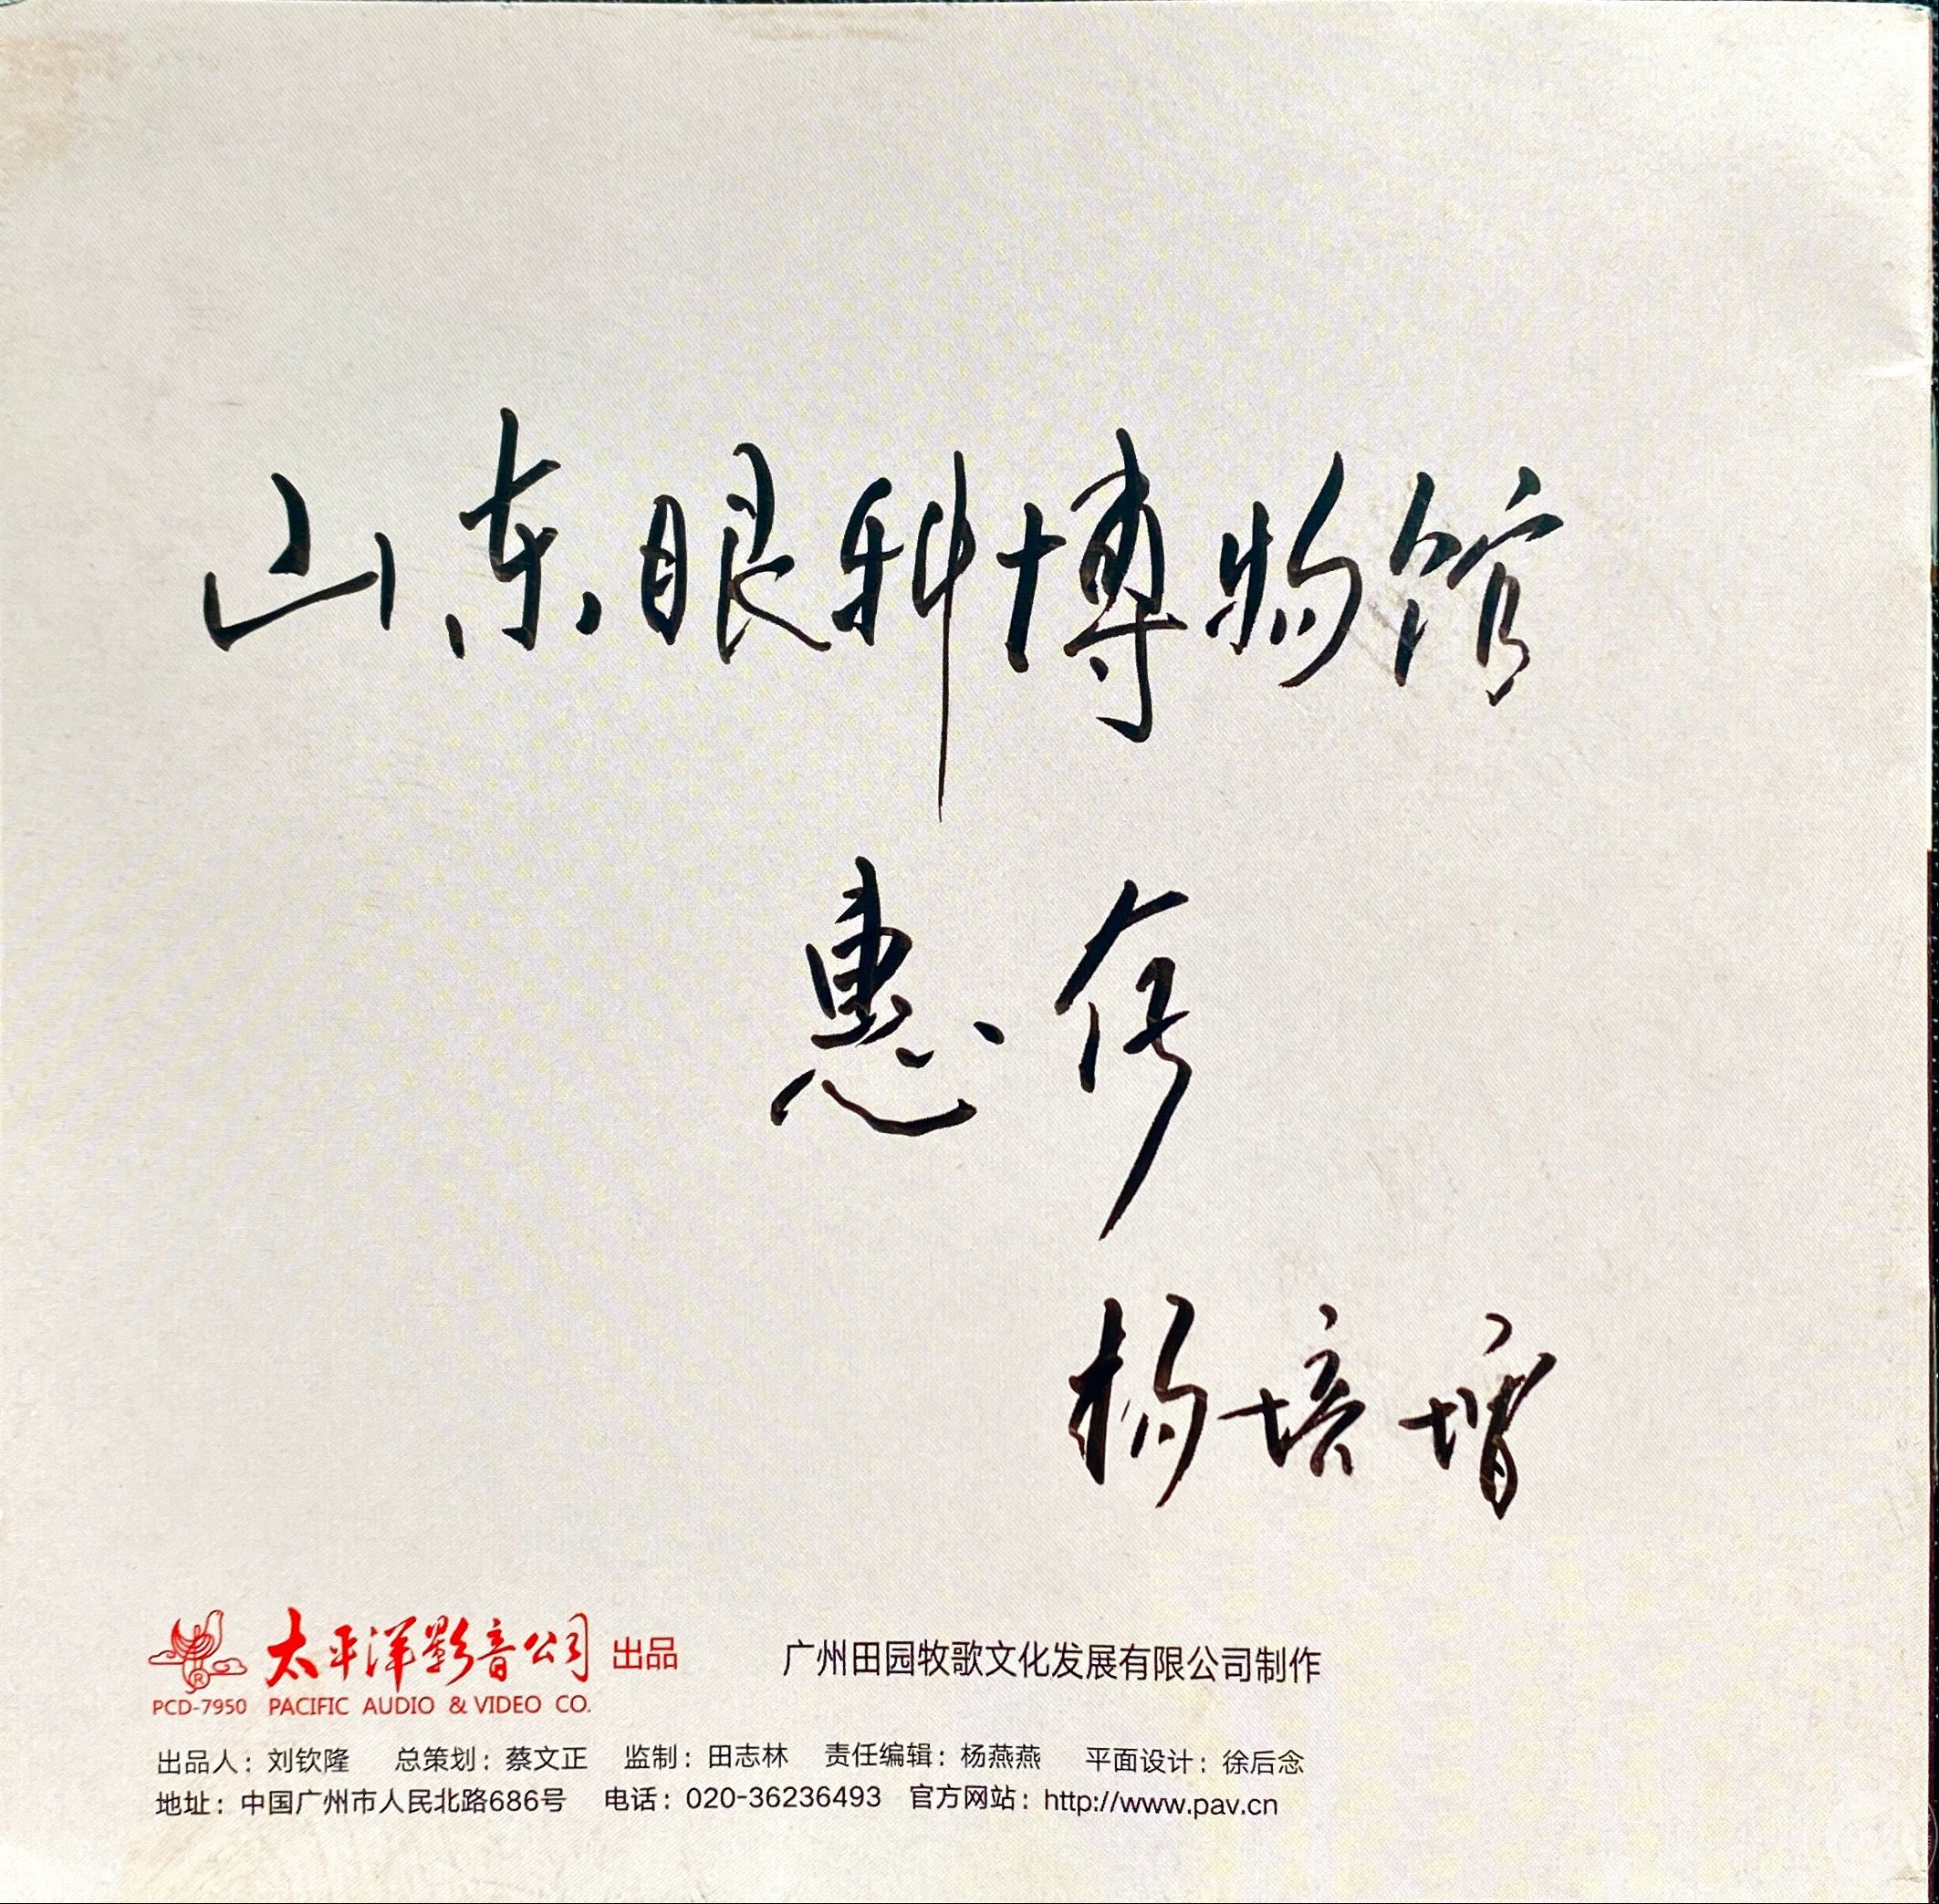 山东眼科博物馆
惠存
杨培增
太平洋影音公司 出品 广州田园牧歌文化发展有限公司制作
PCD-7950 PACIFIC AUDIO & VIDEO CO.
出品人：刘钦隆 总策划：蔡文正 监制：田志林 责任编辑：杨燕燕 平面设计：徐后念
地址：中国广州市人民北路686号 电话：020-36236493 官方网站：http://www.pav.cn